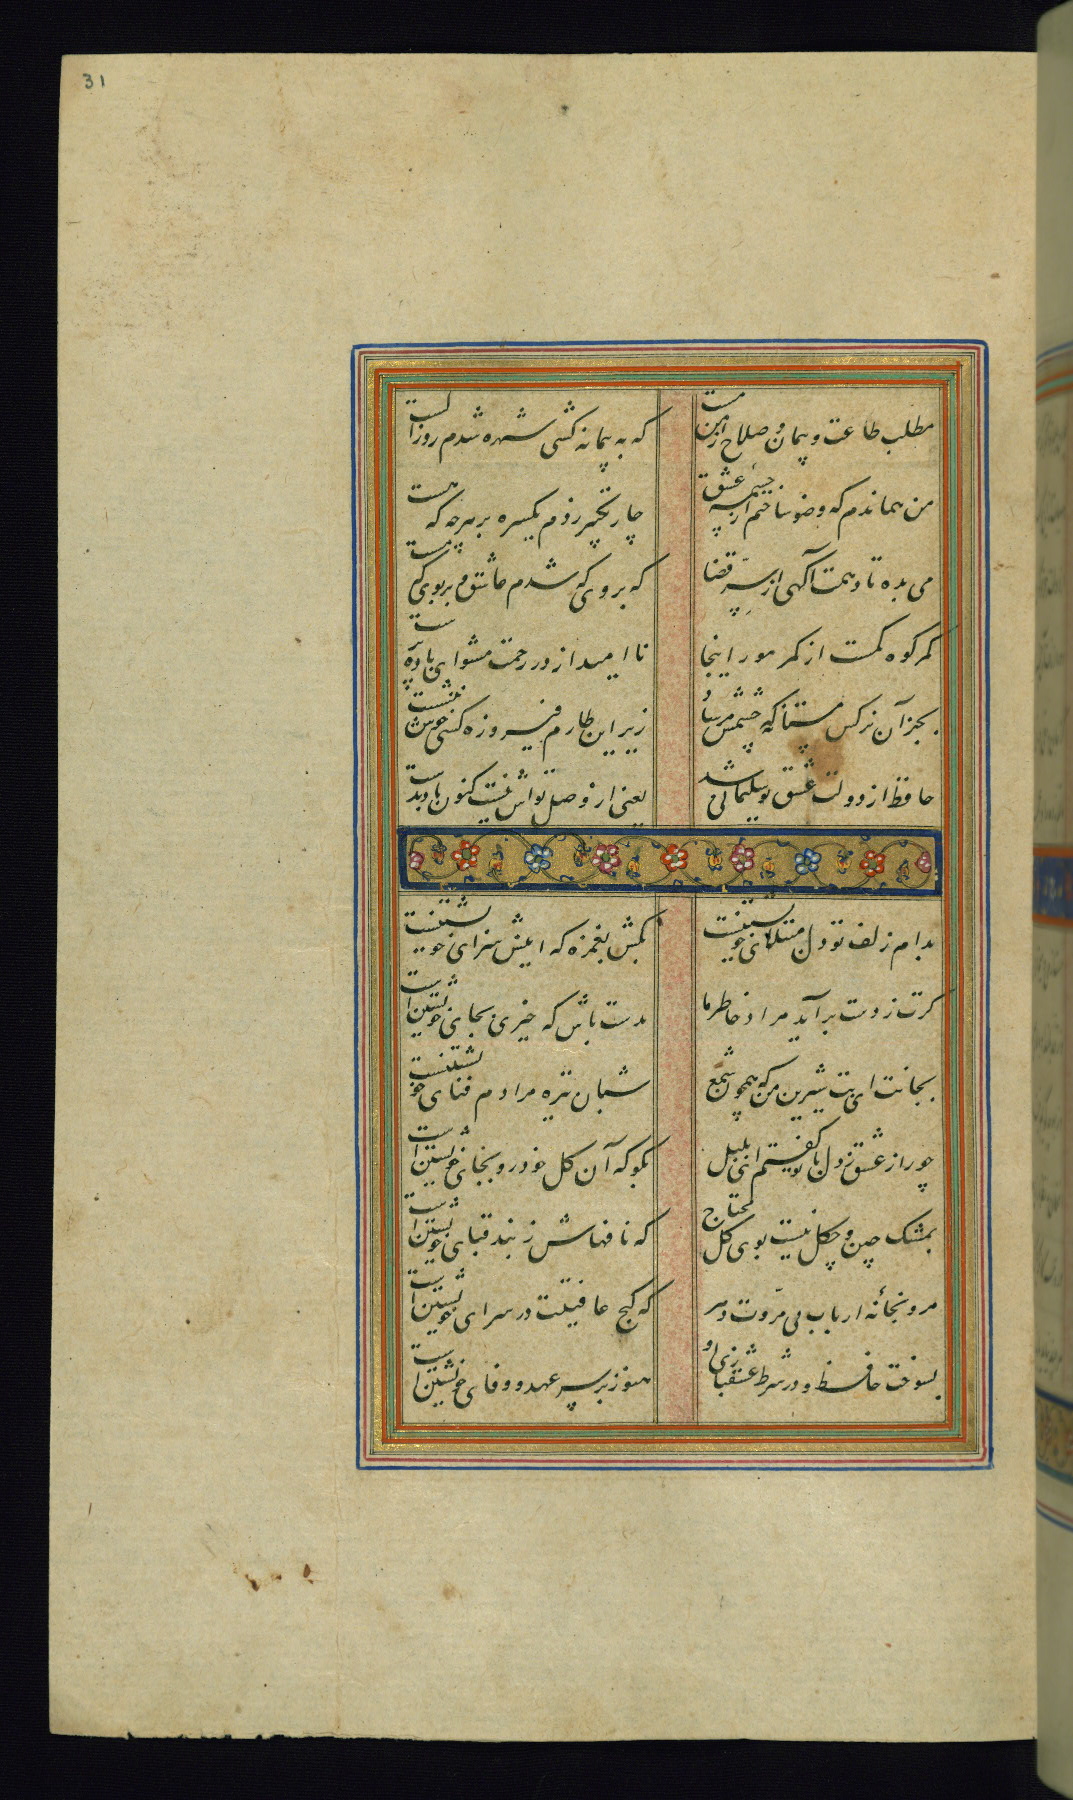 31
مطلب طاعت و پیمان و صلاح از من مست
که به پیمانه کشی شهره شدم روز الست
من هماندم که وضو ساختم از چشمه عشق
چار تکبیر زدم یکسره بر هر چه که هست
می بده تا دهمت آگهی از سر قضا
که بروی که شدم عاشق و بر بوی که مست
کمر کوه کمست از کمر مور اینجا
نا امید از در رحمت مشو ای باده پرست
بجز آن نرکس مستانه که چشمش مرساد
زیر این طارم فیروزه کسی خوش ننشست
حافظ از دولت عشق تو سلیمانی شد
یعنی از وصل تواش نیست کنون باد بدست
بدام زلف تو دل مبتلای خویشتنست
بکش بغمزه که اینش سزای خویشتنست
کرت ز دست بر آید مراد خاطر ما
بدست باش که خیری بجای خویشتن است
بجانت ای بت شیرین من که همچو شمع
شبان تیره مرادم فنای خویشتنست
چو راز عشق زدل با تو کفتم ای بلبل
مکو که آن کل خودرو بجای خویشتن است
بمشک چین و چکل نیست بوی کل محتاج
که نافهاش ز بند قبای خویشتن است
مرو بخانه ارباب بی مروت دهر
که کنج عافیتت در سرای خویشتن است
بسوخت حافظ و در شرط عشقبازی او
هنوز بر سر عهد و وفای خویشتن است